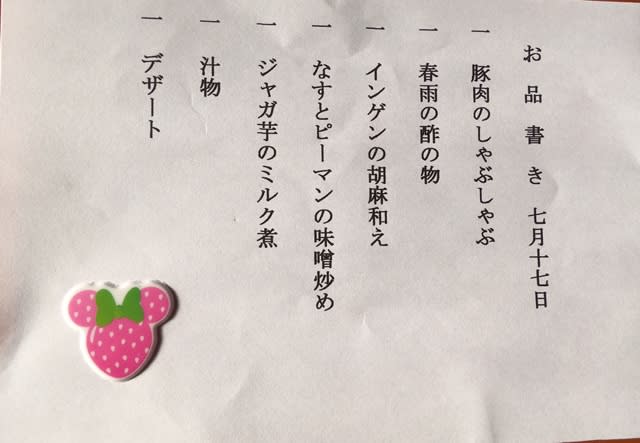 お品書き 七月十七日
一 豚肉のしゃぶしゃぶ
一 春雨の酢の物
一 インゲンの胡麻和え
一 なすとピーマンの味噌炒め
一 ジャガ芋のミルク煮
一 汁物
一 デザート